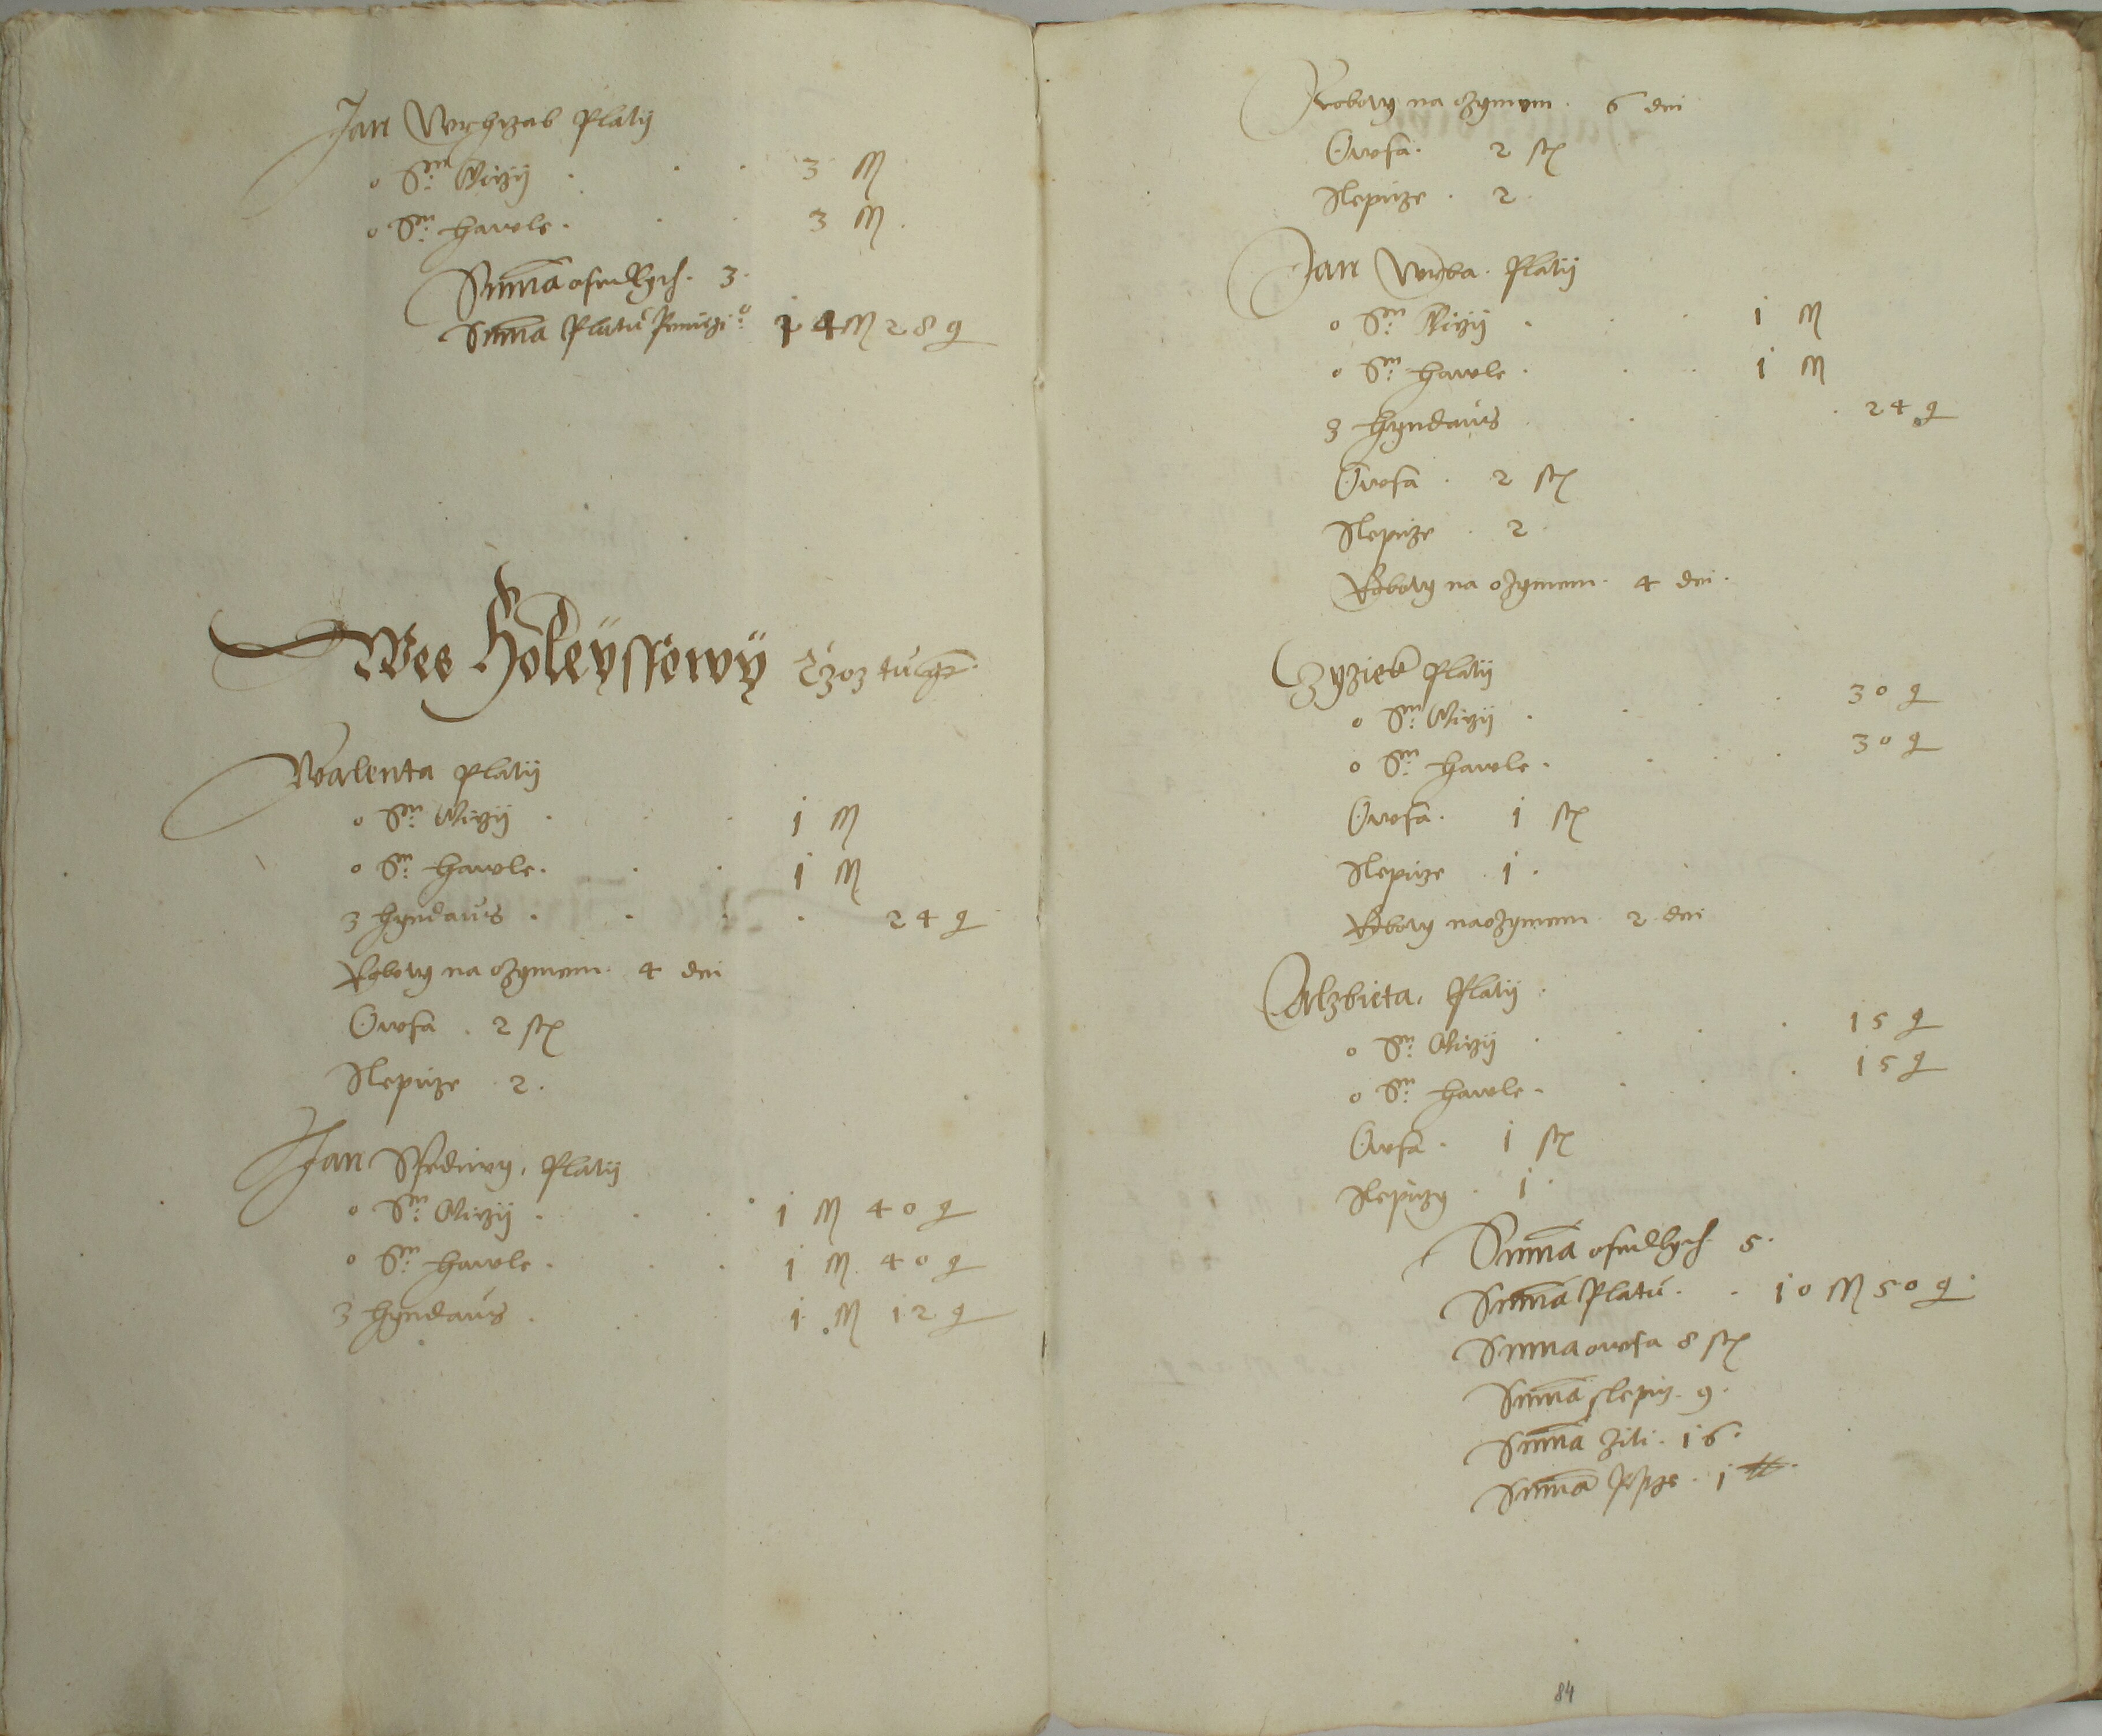 Jan Wrchzab Platij
o Sm: Girzij 3 M
o Sm: Hawle 3 M
Suma osedlych 3
Suma Platu Peniezi 14 M 28 g
Wes Holeyssowy
Walenta Platij
o Sm: Girzij 1 M
o Sm: Hawle 1 M
z hyndaus 24 g
Roboty na ozymem 4 dni
Owsa 2 st
Slepicze 2
Jan Platij
o Sm: Girzij 1 M 40 g
o Sm: Hawle 1 M 40 g
z hyndaus 1 M 12 g
Roboty na ozymem 6 dni
Owsa 2 st
Slepicze 2
Jan Wrba Platij
o Sm: Girzij 1 M
o Sm: Hawle 1 M
z hyndaus 24 g
Owsa 2 st
Slepicze 2
Roboty na ozymem 4 dni
Czyziek Platij
o Sm: Girzij 30 g
o Sm: Hawle 30 g
Owsa 1 st
Slepicze 1
Roboty na ozymem 2 dni
Alzbieta Platij
o Sm: Girzij 15 g
o Sm: Hawle 15 g
Owsa 1 st
Slepiczy 1
Suma osedlych 5
Suma Platu 10 M 50 g
Suma owsa 8 st
Suma slepicz 9
Suma Ziti 16
Suma 1
84